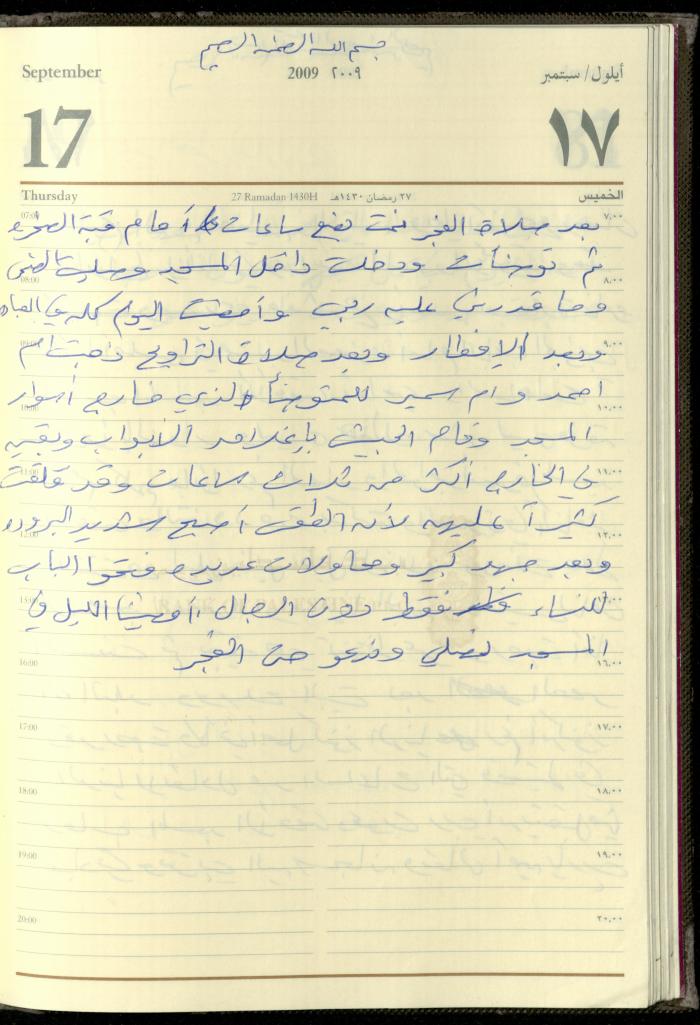 بسم الله الرحمن الرحيم
September 2009 ٢٠٠٩ أيلول/سبتمبر
17 ١٧
Thursday 27 Ramadan 1430H ٢٧ رمضان ١٤٣٠هـ الخميس
07:00 بعد صلاة الفجر نمت بضع ساعات أمام قبة الصخرة ٧,٠٠
ثم توضأت ودخلت داخل المسجد وصليت الضحى
08:00 ٨,٠٠
وما قدرني عليه ربي وأمضيت اليوم كله في العبادة
09:00 وبعد الإفطار وبعد صلاة التراويح ذهبت أم ٩,٠٠
احمد وام سمير للمتوضأ الذي خارج أسوار
10:00 ١٠,٠٠
المسجد وقام الجيش بإغلاق الأبواب وبقيه
11:00 في الخارج أكثر من ثلاث ساعات وقد قلقت ١١,٠٠
كثيراً عليهه لأنه الطقس أصبح شديد البروده
12:00 ١٢,٠٠
وبعد جهد كبير ومحاولات عديده فتحوا الباب
للنساء فقط دون الرجال أمضينا الليل في
المسجد نصلي وندعو حتى الفجر
16:00 ١٦,٠٠
17:00 ١٧,٠٠
18:00 ١٨,٠٠
19:00 ١٩,٠٠
20:00 ٢٠,٠٠